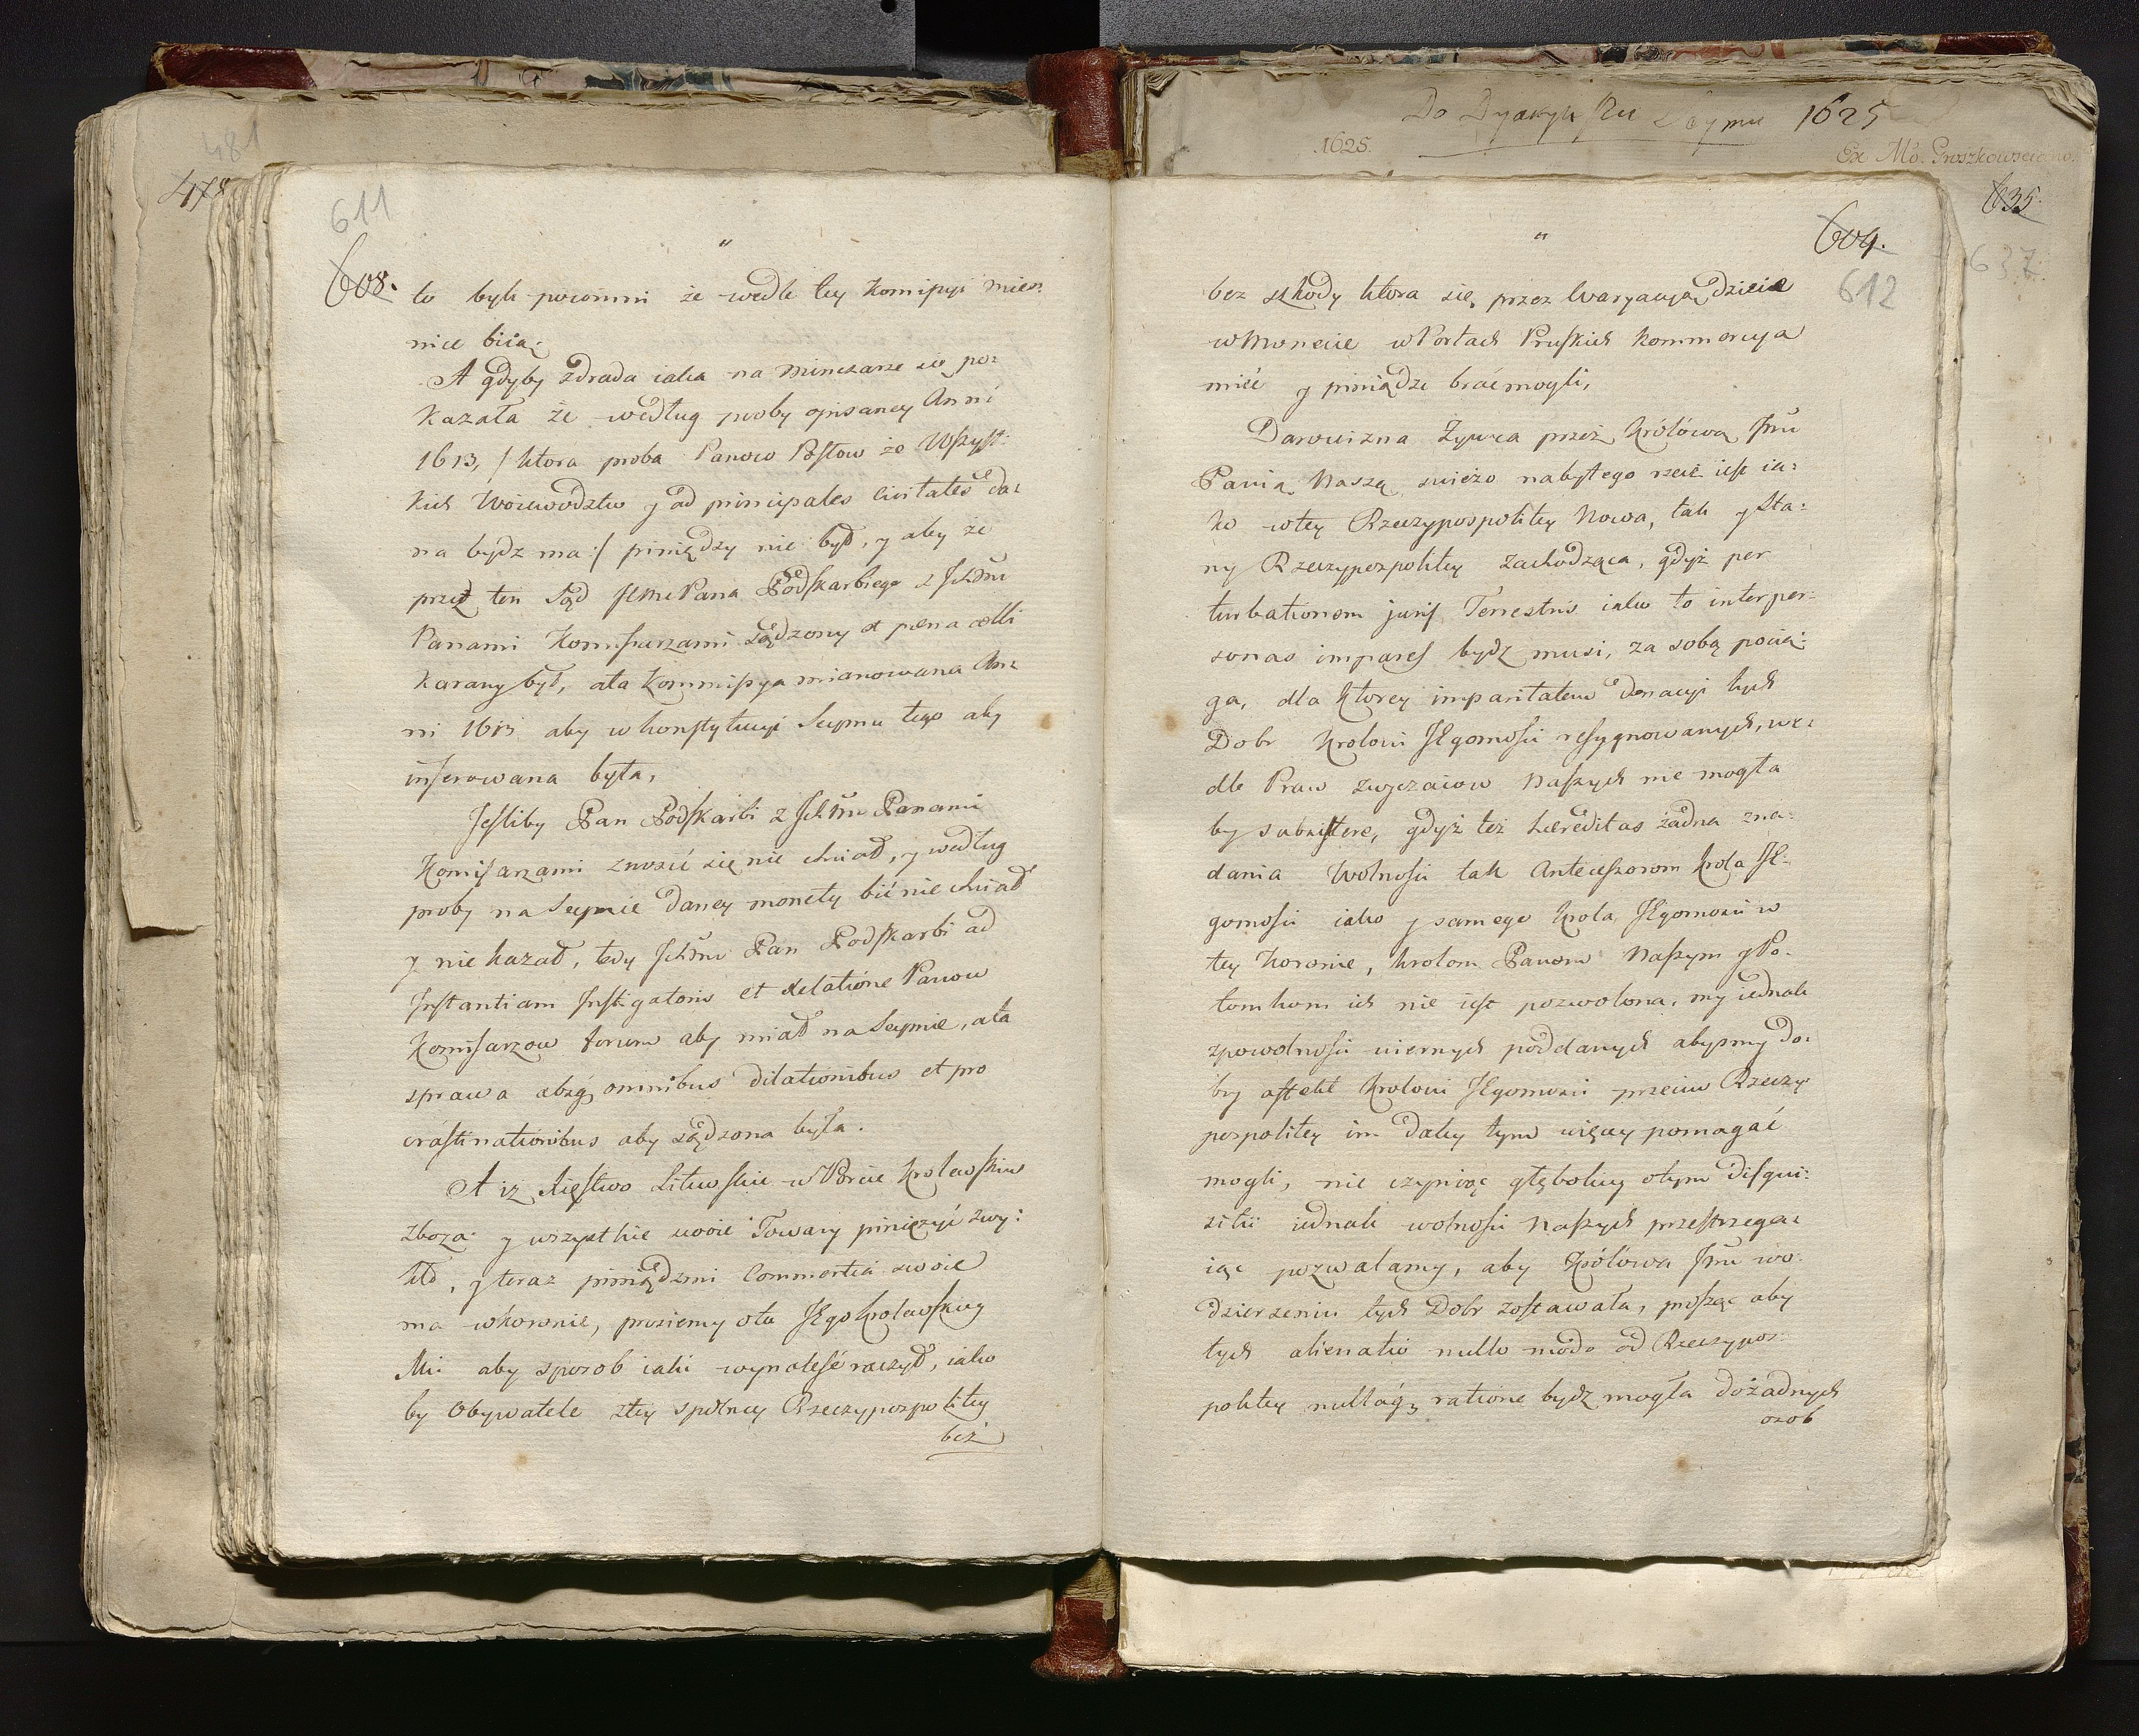 481
478
611
608.
"
to byli powinni że wedle tey Komissyi mien:
nice biią.
A gdyby zdrada iaka na Minczarze się po:
kazała że według proby opisaney Anni
1613, / ktora proba Panow Posłow ze Wszyst:
kich Woiewodztw y ad principales Civitates da:
na bydz ma :/ piniędzy nie był, y aby ze
przez ten Sąd JEMci Pana Podskarbiego z Ichm
Panami Kommissarzami sądzony et pena colli
karany był, ata Kommissya mianowana An:
ni 1613 aby w konstytucyi Seymu tego aby
inserowana była,
Jesliby Pan Podskarbi z Ichm Panami
Komisarzami znosić się nie chciał, y według
proby na Seymie daney monety bić nie chciał
y nie kazał, tedy Ichm Pan Podskarbi ad
Instantiam Instigatoris et delatione Panow
Komisarzow forum aby miał na Seymie, ata
sprawa absq omnibus dilationibus et pro
crastinationibus aby sądzona była.
A iz Xięstwo Litewskie w Porcie Krolewskim
zboza y wszystkie swoie Towary pinięzyć zwy:
kło, y teraz piniądzmi Commertia swoie
ma w koronie, prosiemy ota JEgo Krolewskiey
Mci aby sposob iaki wynalesć raczył, iako
by Obywatele ztey spolney Rzeczypospolitey
bez
Do Dyaryu Seymu 1625
1625.
Ex Ms. Proszkowsciano.
635.
637.
"
609.
612
bez szkody ktora się przez Waryacyą dzieie
w Monecie w Portach Pruskich kommercya
mieć y piniądze brać mogli,
Darowizna Zywca przez Królową Jmć
Panią Naszą swieżo nabytego rzecz iest ia:
ko wtey Rzeczypospolitey Nowa, tak y Sta:
ny Rzeczypospolitey zachodząca, gdyż per
turbationem juris Terrestris iako to inter per:
sonas impares bydz musi, za sobą pocią:
ga, dla ktorey imparitatem donacyi tych
Dobr Krolowi JEgomosci resygnowanych, we:
dle Praw zwyczaiow Naszych nie mogła
by subsistere, gdyż też hereditas żadna zna:
dania Wolnosci tak Antecessorom Krola JE:
gomosci iako y samego Krola JEgomosci w
tey Koronie, Krolom Panom Naszym y Po:
tomkom ich nie iest pozwolona, my iednak
z powolnosci wiernych poddanych abysmy do:
bry affekt Krolowi JEgomosci przeciw Rzeczy
pospolitey im daley tym więcey pomagać
mogli, nie czyniąc głębokiey otym disqui:
sitii iednak wolnosci Naszych przestrzega:
iąc pozwalamy, aby Królowa Jmć wo:
dzierzeniu tych Dobr zostawała, prosząc aby
tych alienatio nullo modo od Rzeczypos:
politey nullaq ratione bydz mogła do żadnych
osob